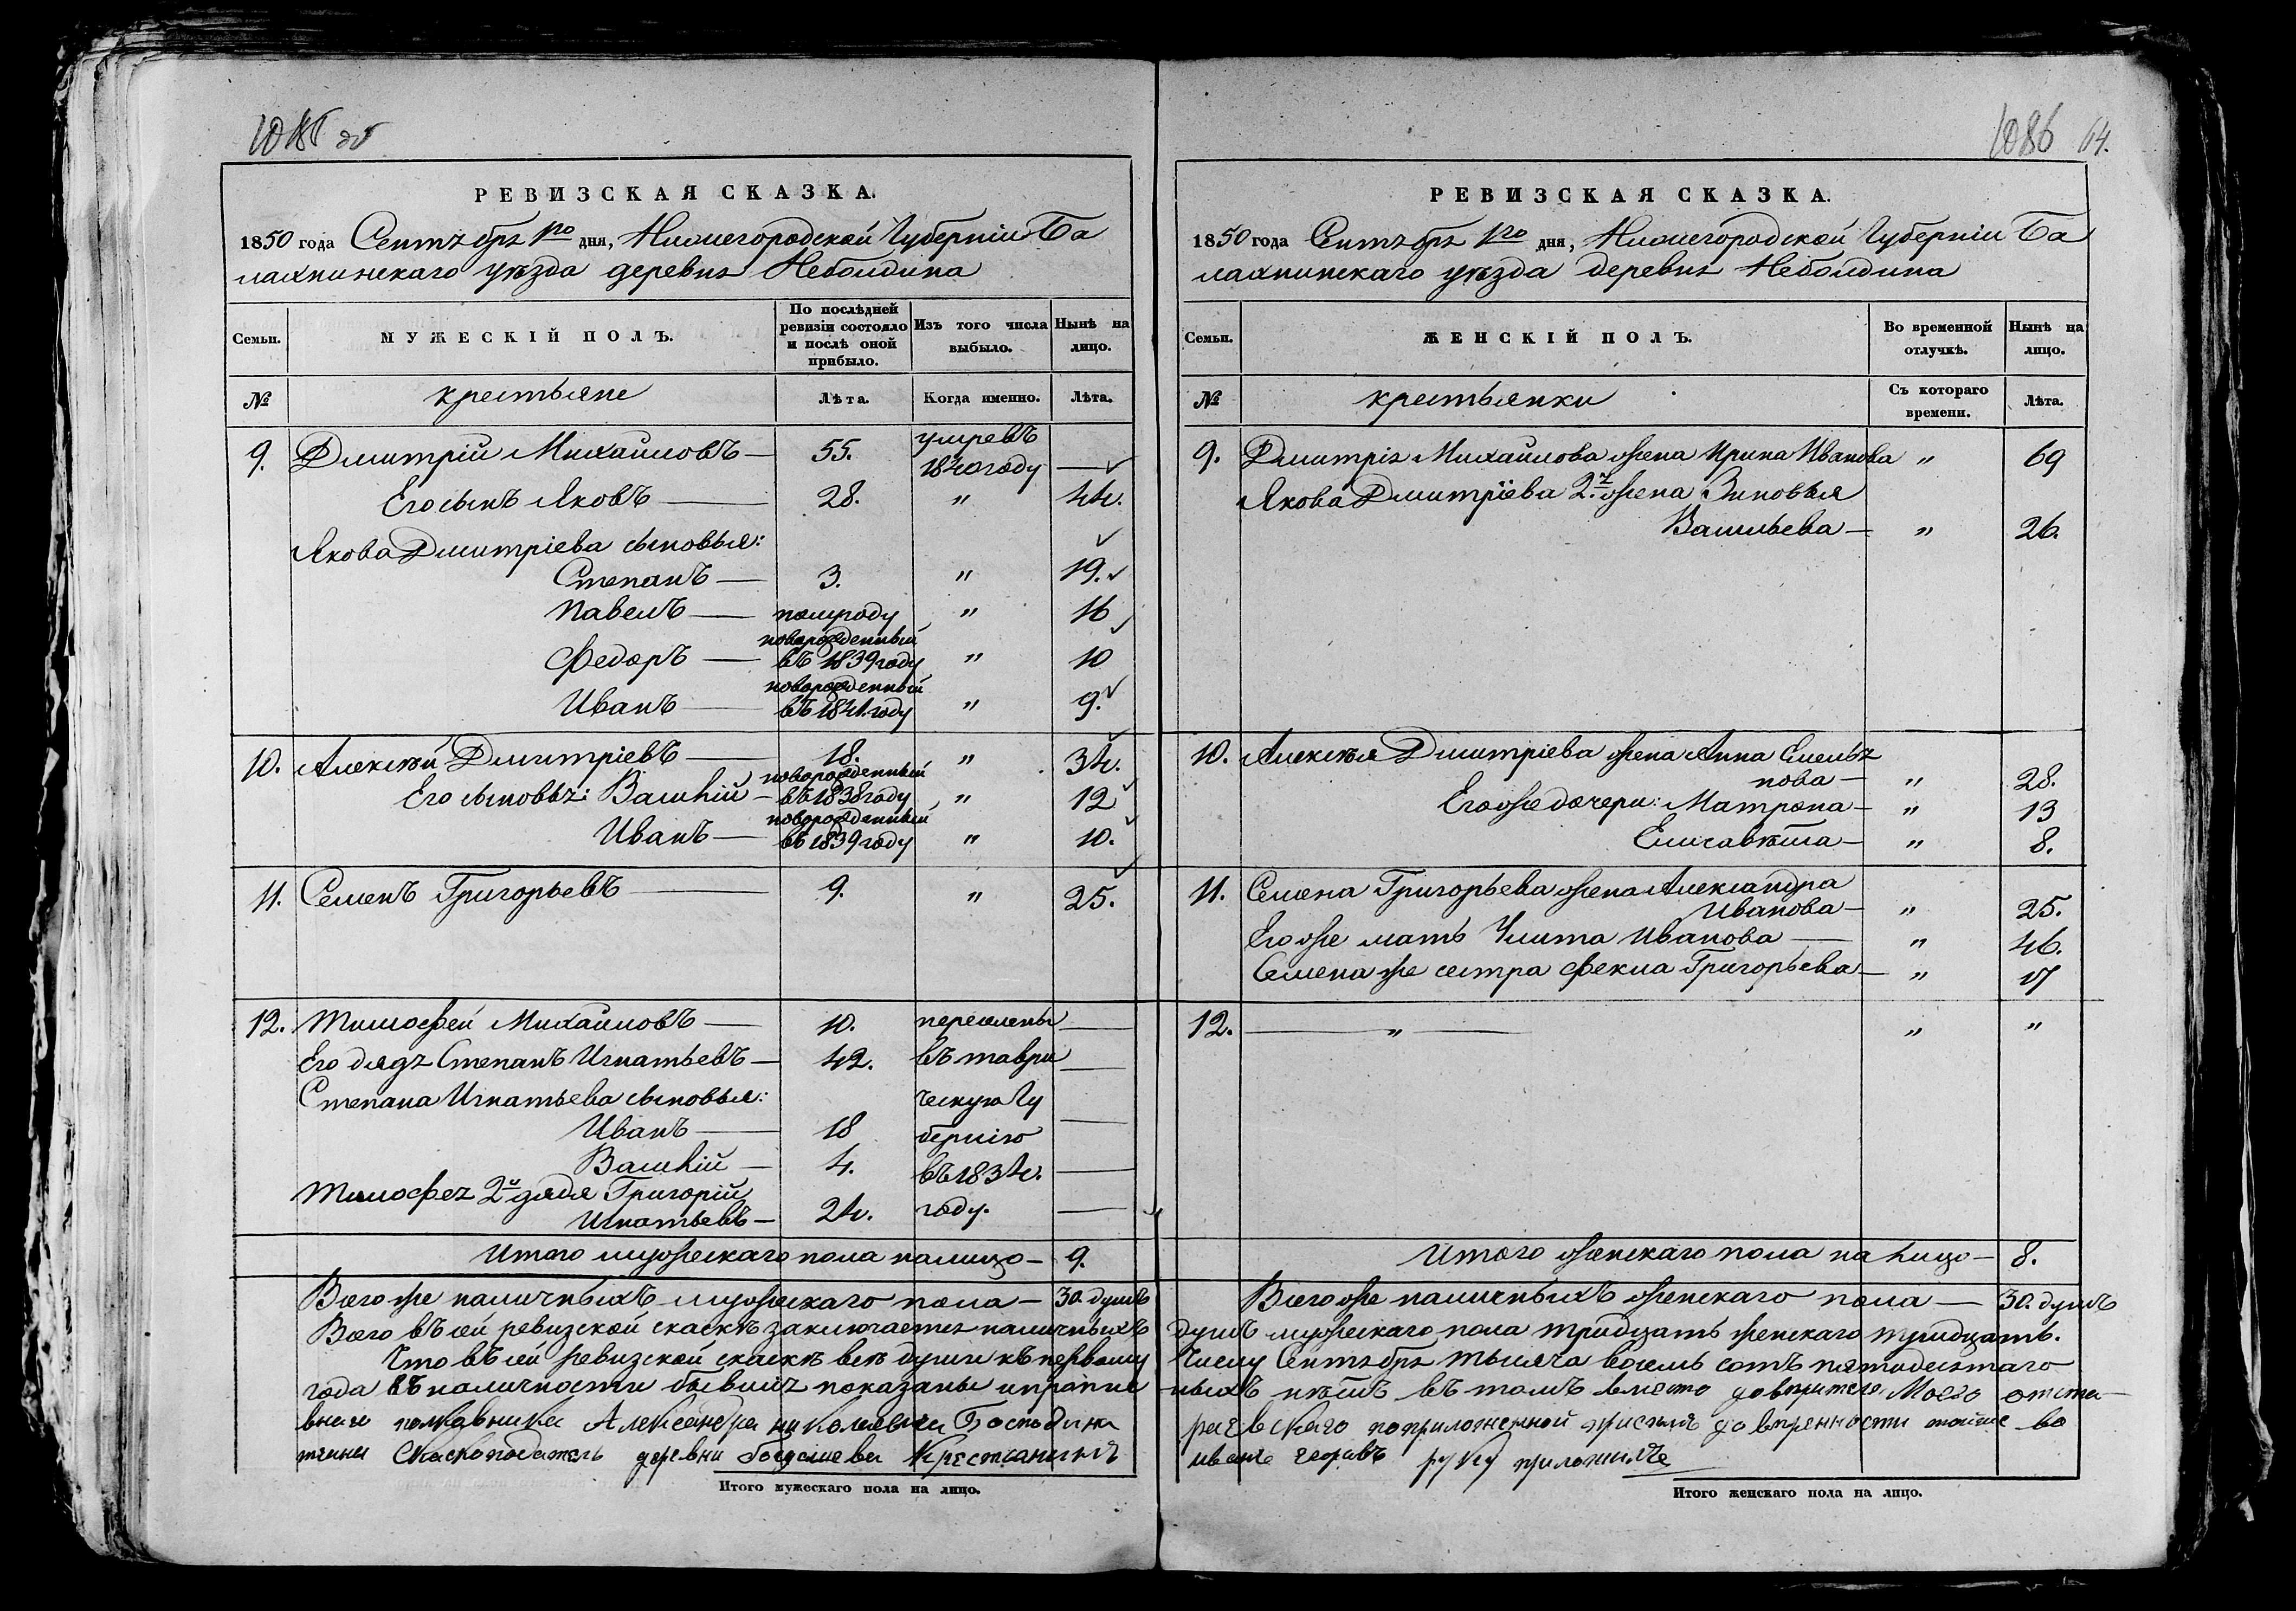 1085 об
РЕВИЗСКАЯ СКАЗКА.
1850 года Сентября 1го дня, Нижегородской Губерніи Ба
лахнинскаго уѣзда деревня Неболдина
Семьи. МУЖЕСКІЙ ПОЛЪ. По послѣдней ревизіи состояло и послѣ оной прибыло. Изъ того числа выбыло. Нынѣ на лицо.
№ крестьяне Лѣта. Когда именно. Лѣта.
9. Дмитрій Михайловъ — 55. умревъ 1840 году —
Его сынъ Яковъ — 28. " 44.
Якова Дмитріева сыновья:
Степанъ — 3. " 19.
Павелъ — полугоду " 16
Федоръ — новорожденный въ 1839 году " 10
Иванъ — новорожденный въ 1841. году " 9.
10. Алексѣй Дмитріевъ — 18. " 34.
Его сыновья: Василій — новорожденный въ 1838 году " 12
Иванъ — новорожденный въ 1839 году " 10.
11. Семенъ Григорьевъ — 9. " 25.
12. Тимофей Михайловъ — 10. переселены —
Его дядя Степанъ Игнатьевъ — 42. въ Таври —
Степана Игнатьева сыновья: ческую Гу
Иванъ — 18 бернію —
Василій — 4. въ 1834. —
Тимофея 2й дядя Григорій
Игнатьевъ — 24. году. —
Итого мужескаго пола налицо — 9.
Всего же наличныхъ мужескаго пола — 30. душъ
Всего въ сей ревизской сказкѣ заключается наличныхъ
Что въ сей ревизской сказкѣ всѣ души къ первому
года въ наличности бывшія показаны и пропис
внаго полковника Александра Николаевича
Сказкоподатель деревни Крестьянинъ
Итого мужескаго пола на лицо.
1086 64.
РЕВИЗСКАЯ СКАЗКА.
1850 года Сентября 1го дня, Нижегородской Губерніи Ба
лахнинскаго уѣзда деревня Неболдина
Семьи. ЖЕНСКІЙ ПОЛЪ. Во временной отлучкѣ. Нынѣ на лицо.
№ крестьянки Съ котораго времени. Лѣта.
9. Дмитрія Михайлова жена Ирина Иванова " 69
Якова Дмитріева 2.я жена Зиновья
Васильева — " 26.
10. Алексѣя Дмитріева жена Анна Емелья
нова — " 28.
Его же дочери: Матрона — " 13
Елисавѣта — " 8.
11. Семена Григорьева жена Александра
Иванова — " 25.
Его же мать Улита Иванова — " 46.
Семена же сестра Фекла Григорьева — " 17
12. — " — " "
Итого женскаго пола на лицо — 8.
Всего же наличныхъ женскаго пола — 30. душъ
душъ мужескаго пола тридцать женскаго тридцать.
числу Сентября тысяча восемь сотъ пятидесятаго
ныхъ нѣтъ въ томъ вмѣсто довѣрителя Моего отста
по приложенной при семъ довѣренности
Иванъ руку приложилъ
Итого женскаго пола на лицо.